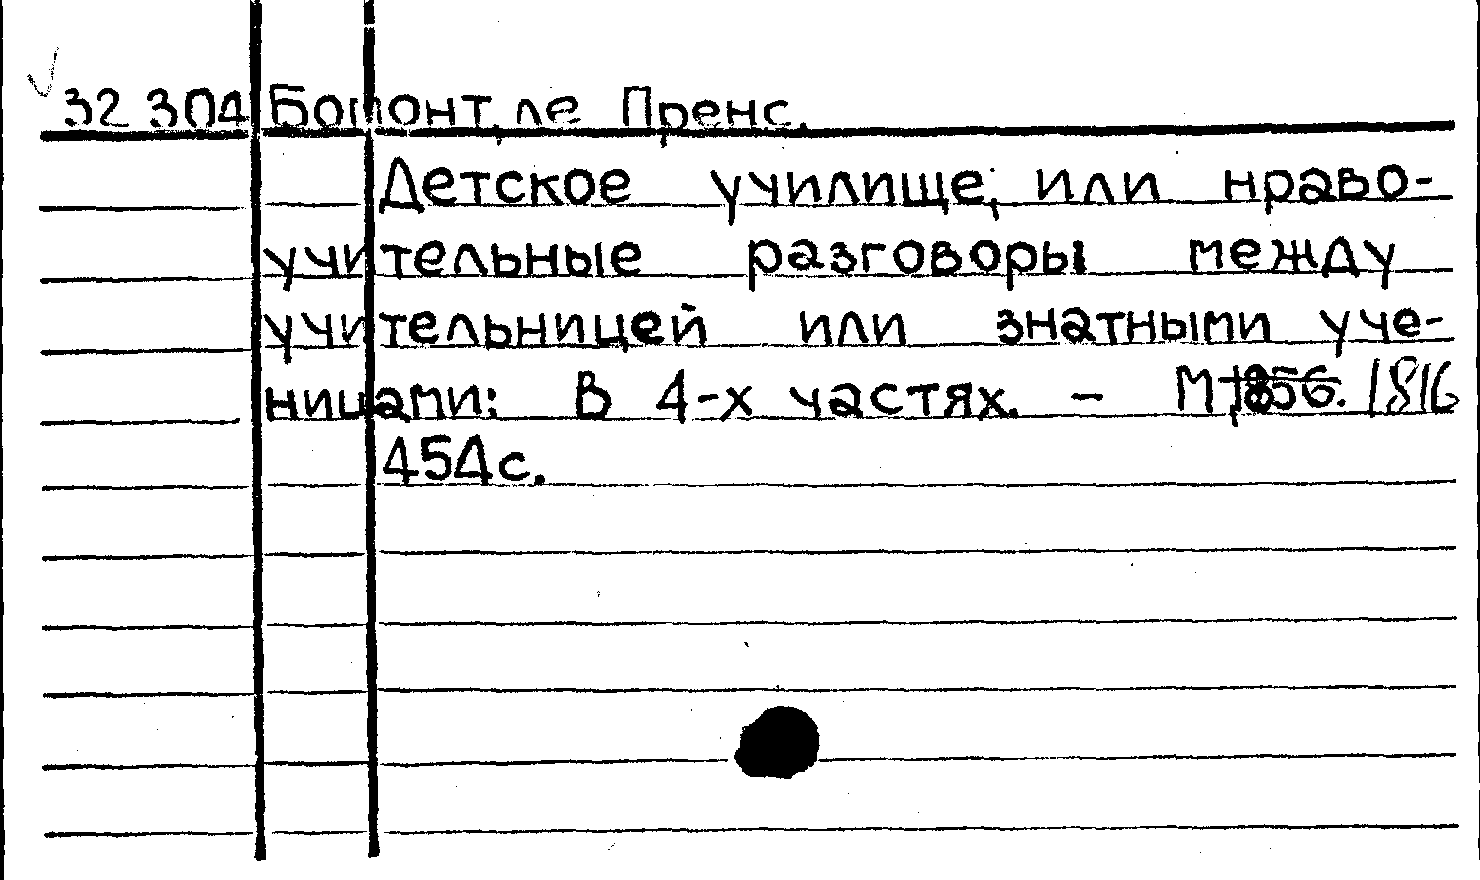 32 304 Бомонт, ле Пренс.
Детское училище; или нраво-
учительные разговоры между
учительницей или знатными уче-
ницами: В 4-х частях. - М, 1856. 1816
454 с.